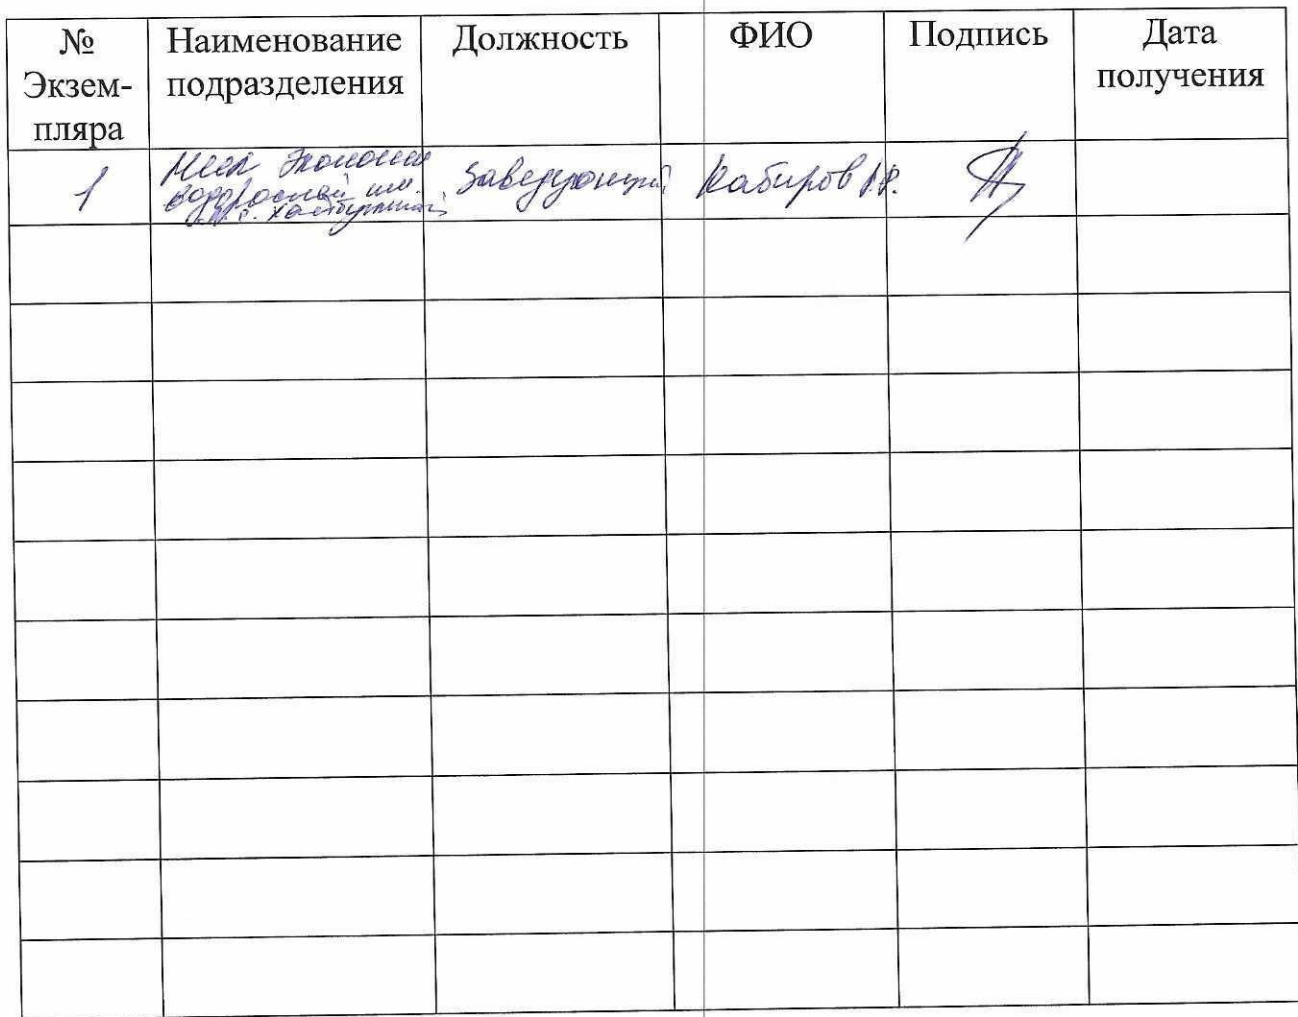 № Экзем-пляра Наименование подразделения Должность ФИО Подпись Дата получения
1 водорослей им. Заведующий Кабиров Р.Р.